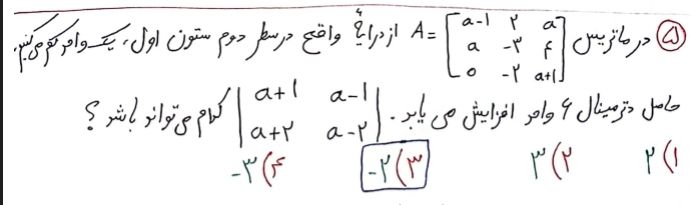 ۵) در ماتریس A = [a-1 ۲ a; a -۳ ۴; 0 -۲ a+1] از درایهٔ واقع در سطر دوم ستون اول، یک واحد کم می‌کنیم،
حاصل دترمینال ۶ واحد افزایش می یابد. |a+1 a-1; a+۲ a-۲| کدام می‌تواند باشد؟
۱) ۲ ۲) ۳ ۳) -۲ ۴) -۳